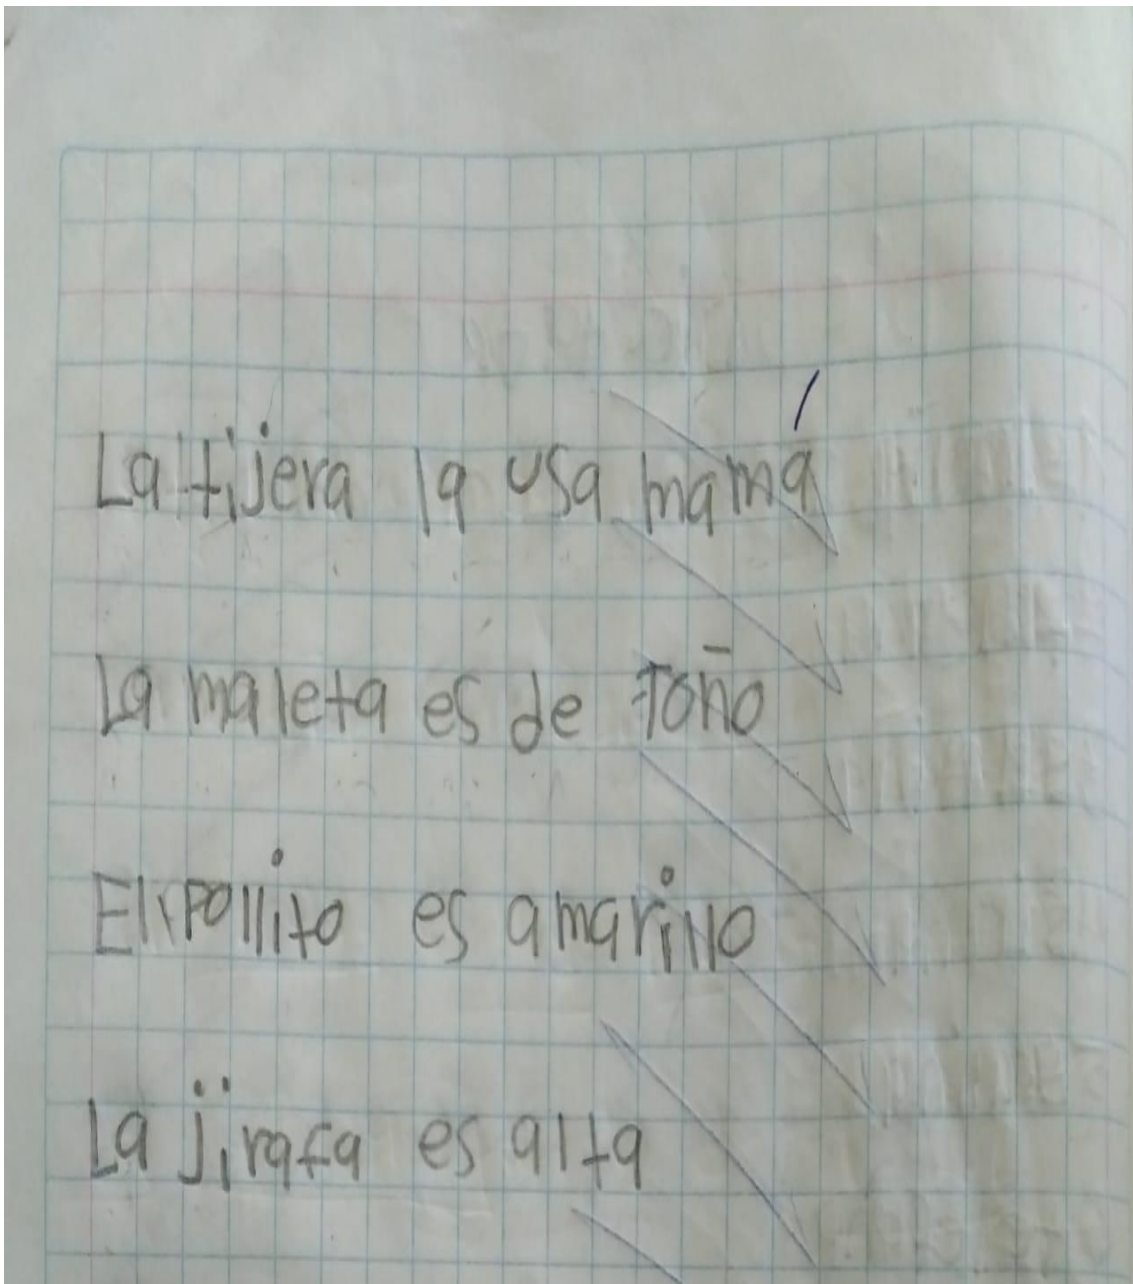 La tijera la usa mamá
la maleta es de Toño
El pollito es amarillo
La jirafa es alta